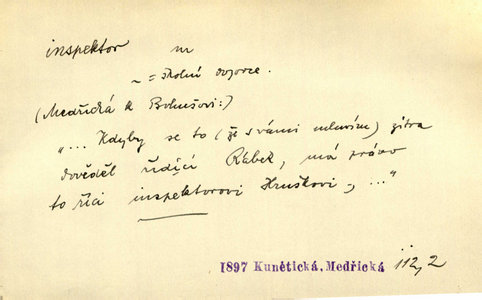 inspektor m
~ = školní dozorce.
(Medřická k Bohušovi:)
"... Kdyby se to (že s vámi mluvím) zítra
dověděl řídící Rábek, má právo
to říci inspektorovi Hruškovi, ..."
1897 Kunětická, Medřická 112,2